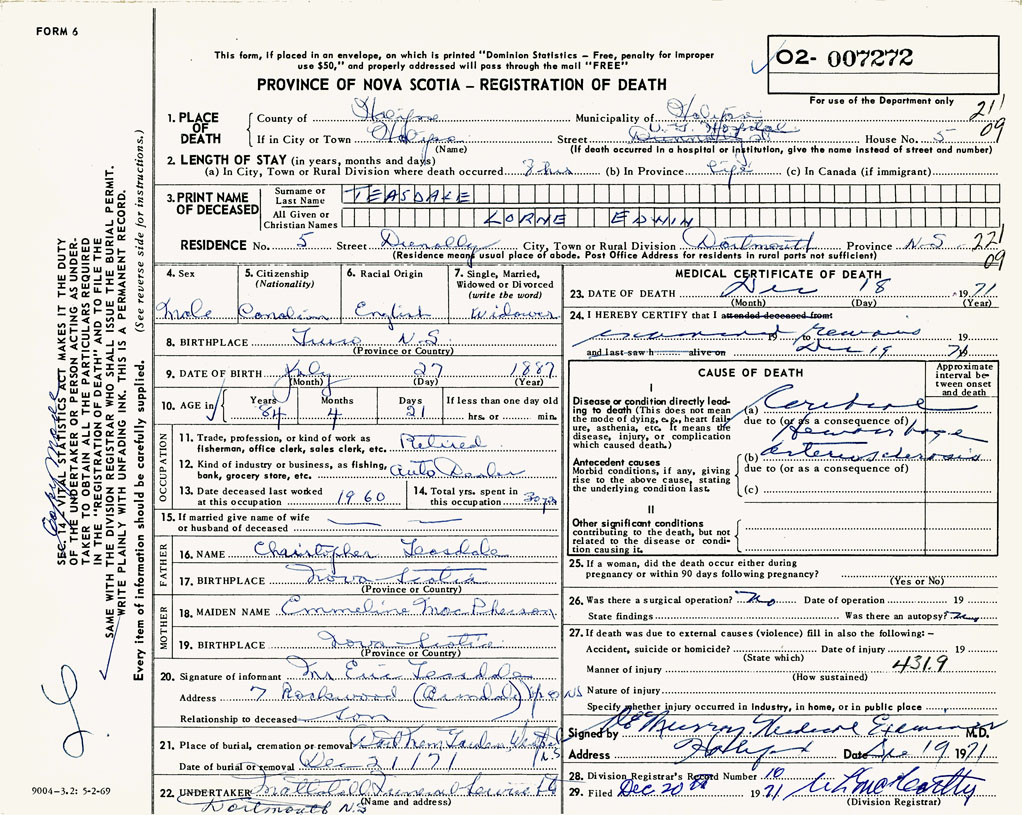 FORM 6
This form, if placed in an envelope, on which is printed "Dominion Statistics – Free, penalty for improper
use $50," and properly addressed will pass through the mail "FREE"
O2- 007272
PROVINCE OF NOVA SCOTIA – REGISTRATION OF DEATH
For use of the Department only
211
09
1. PLACE OF DEATH
County of Halifax Municipality of Halifax
V. G. Hospital
If in City or Town Halifax Street House No. 5
(Name) (If death occurred in a hospital or institution, give the name instead of street and number)
2. LENGTH OF STAY (in years, months and days)
(a) In City, Town or Rural Division where death occurred 8 hrs (b) In Province Life (c) In Canada (if immigrant)
3. PRINT NAME OF DECEASED
Surname or Last Name TEASDALE
All Given or Christian Names LORNE EDWIN
RESIDENCE No. 5 Street City, Town or Rural Division Dartmouth Province N.S. 221
09
(Residence means usual place of abode. Post Office Address for residents in rural parts not sufficient)
4. Sex
Male
5. Citizenship (Nationality)
Canadian
6. Racial Origin
English
7. Single, Married, Widowed or Divorced (write the word)
Widower
8. BIRTHPLACE Truro N.S.
(Province or Country)
9. DATE OF BIRTH July 27 1887
(Month) (Day) (Year)
10. AGE in Years 84 Months 4 Days 21 If less than one day old hrs. or min.
OCCUPATION
11. Trade, profession, or kind of work as fisherman, office clerk, sales clerk, etc. Retired
12. Kind of industry or business, as fishing, bank, grocery store, etc. Auto Dealer
13. Date deceased last worked at this occupation 1960
14. Total yrs. spent in this occupation 30 yrs
15. If married give name of wife or husband of deceased
FATHER
16. NAME Christopher Teasdale
17. BIRTHPLACE Nova Scotia
(Province or Country)
MOTHER
18. MAIDEN NAME Emmeline MacPherson
19. BIRTHPLACE Nova Scotia
(Province or Country)
20. Signature of informant Mr Eric Teasdale
Address 7 Rockwood (Armdale) NS
Relationship to deceased Son
21. Place of burial, cremation or removal
N.S
Date of burial or removal Dec 21 / 71
22. UNDERTAKER Mattatall Funeral Service Ltd
Dartmouth N.S (Name and address)
9004–3.2: 5-2-69
MEDICAL CERTIFICATE OF DEATH
23. DATE OF DEATH Dec 18 1971
(Month) (Day) (Year)
24. I HEREBY CERTIFY that I attended deceased from
examined remains 19 to 19
and last saw h alive on Dec 19 71
CAUSE OF DEATH
Approximate interval between onset and death
I
Disease or condition directly leading to death (This does not mean the mode of dying, e.g., heart failure, asthenia, etc. It means the disease, injury, or complication which caused death.)
(a) Cerebral
due to (or as a consequence of)
Hemorrhage
Antecedent causes
Morbid conditions, if any, giving rise to the above cause, stating the underlying condition last.
(b) arteriosclerosis
due to (or as a consequence of)
(c)
II
Other significant conditions
contributing to the death, but not related to the disease or condition causing it.
25. If a woman, did the death occur either during pregnancy or within 90 days following pregnancy?
(Yes or No)
26. Was there a surgical operation? No Date of operation 19
State findings Was there an autopsy? No
27. If death was due to external causes (violence) fill in also the following: –
Accident, suicide or homicide? Date of injury 19
(State which)
Manner of injury 431.9
(How sustained)
Nature of injury
Specify whether injury occurred in industry, in home, or in public place
Signed by Murray Medical Examiner M.D.
Address Halifax Date Dec 19 1971
28. Division Registrar's Record Number 10
29. Filed Dec 20th 1971
(Division Registrar)
SEC. 14, VITAL STATISTICS ACT MAKES IT THE DUTY
OF THE UNDERTAKER OR PERSON ACTING AS UNDER-
TAKER TO OBTAIN ALL THE PARTICULARS REQUIRED
IN THE "REGISTRATION OF DEATH" AND TO FILE THE
SAME WITH THE DIVISION REGISTRAR WHO SHALL ISSUE THE BURIAL PERMIT.
WRITE PLAINLY WITH UNFADING INK. THIS IS A PERMANENT RECORD.
Every item of information should be carefully supplied. (See reverse side for instructions.)